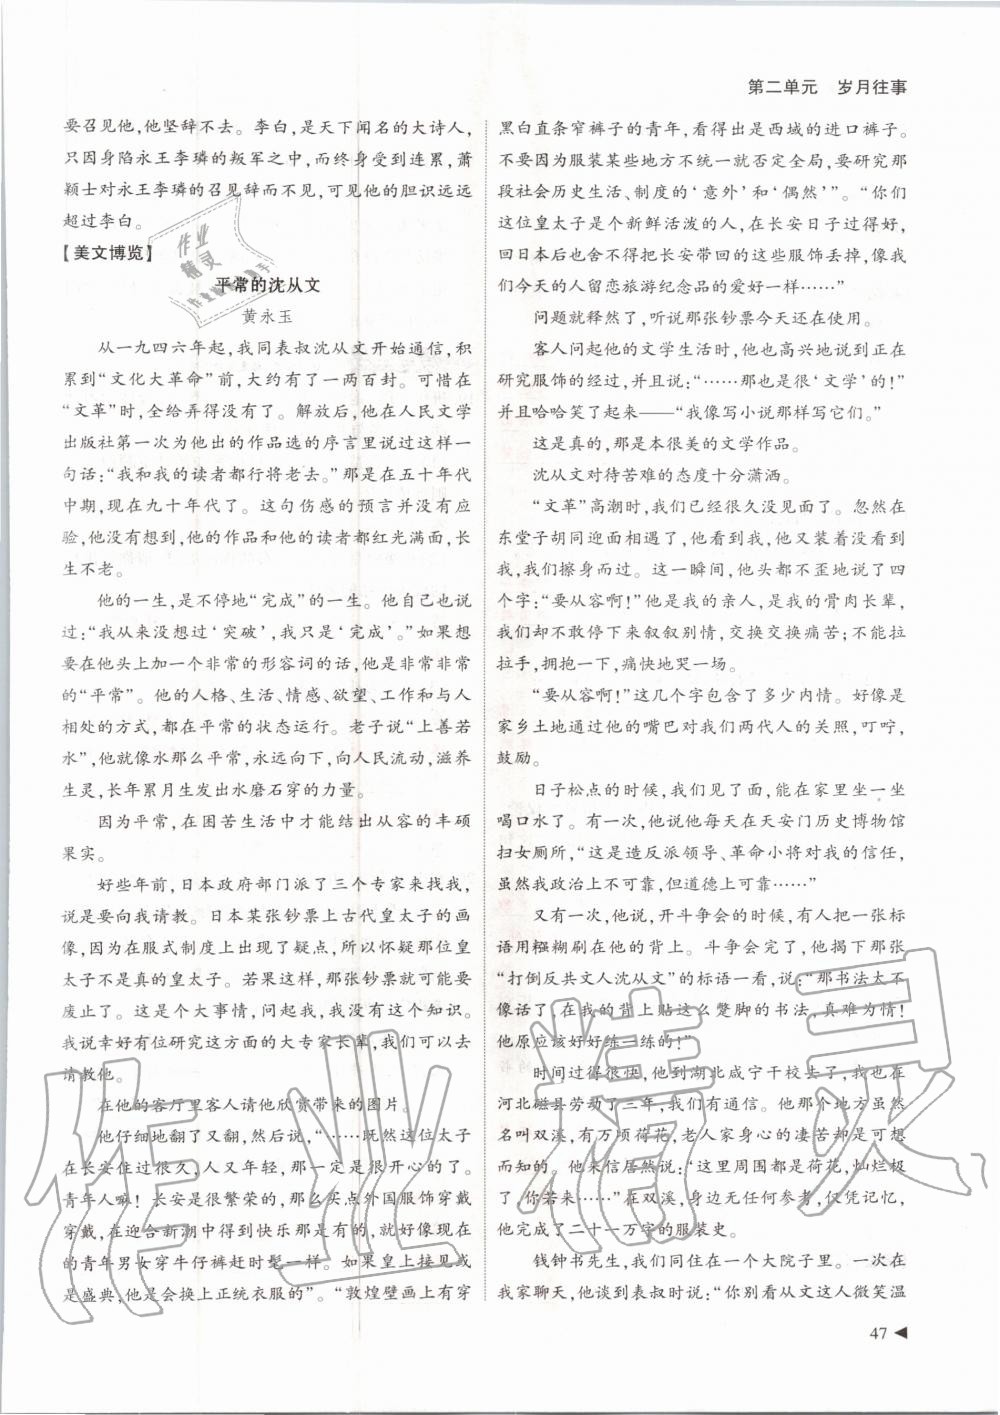 第二单元　岁月往事
要召见他,他坚辞不去。李白,是天下闻名的大诗人,
只因身陷永王李璘的叛军之中,而终身受到连累,萧
颖士对永王李璘的召见辞而不见,可见他的胆识远远
超过李白。
【美文博览】
平常的沈从文
黄永玉
从一九四六年起,我同表叔沈从文开始通信,积
累到“文化大革命”前,大约有了一两百封。可惜在
“文革”时,全给弄得没有了。解放后,他在人民文学
出版社第一次为他出的作品选的序言里说过这样一
句话:“我和我的读者都行将老去。”那是在五十年代
中期,现在九十年代了。这句伤感的预言并没有应
验,他没有想到,他的作品和他的读者都红光满面,长
生不老。
他的一生,是不停地“完成”的一生。他自己也说
过:“我从来没想过‘突破’,我只是‘完成’。”如果想
要在他头上加一个非常的形容词的话,他是非常非常
的“平常”。他的人格、生活、情感、欲望、工作和与人
相处的方式,都在平常的状态运行。老子说“上善若
水”,他就像水那么平常,永远向下,向人民流动,滋养
生灵,长年累月生发出水磨石穿的力量。
因为平常,在困苦生活中才能结出从容的丰硕
果实。
好些年前,日本政府部门派了三个专家来找我,
说是要向我请教。日本某张钞票上古代皇太子的画
像,因为在服式制度上出现了疑点,所以怀疑那位皇
太子不是真的皇太子。若果这样,那张钞票就可能要
废止了。这是个大事情,问起我,我没有这个知识。
我说幸好有位研究这方面的大专家长辈,我们可以去
请教他。
在他的客厅里客人请他欣赏带来的图片。
他仔细地翻了又翻,然后说,“……既然这位太子
在长安住过很久,人又年轻,那一定是很开心的了。
青年人嘛!长安是很繁荣的,那么买点外国服饰穿戴
穿戴,在迎合新潮中得到快乐那是有的,就好像现在
的青年男女穿牛仔裤赶时髦一样。如果皇上接见或
是盛典,他是会换上正统衣服的”。“敦煌壁画上有穿
黑白直条窄裤子的青年,看得出是西域的进口裤子。
不要因为服装某些地方不统一就否定全局,要研究那
段社会历史生活、制度的‘意外’和‘偶然’”。“你们
这位皇太子是个新鲜活泼的人,在长安日子过得好,
回日本后也舍不得把长安带回的这些服饰丢掉,像我
们今天的人留恋旅游纪念品的爱好一样……”
问题就释然了,听说那张钞票今天还在使用。
客人问起他的文学生活时,他也高兴地说到正在
研究服饰的经过,并且说:“……那也是很‘文学’的!”
并且哈哈笑了起来——“我像写小说那样写它们。”
这是真的,那是本很美的文学作品。
沈从文对待苦难的态度十分潇洒。
“文革”高潮时,我们已经很久没见面了。忽然在
东堂子胡同迎面相遇了,他看到我,他又装着没看到
我,我们擦身而过。这一瞬间,他头都不歪地说了四
个字:“要从容啊!”他是我的亲人,是我的骨肉长辈,
我们却不敢停下来叙叙别情,交换交换痛苦;不能拉
拉手,拥抱一下,痛快地哭一场。
“要从容啊!”这几个字包含了多少内情。好像是
家乡土地通过他的嘴巴对我们两代人的关照,叮咛,
鼓励。
日子松点的时候,我们见了面,能在家里坐一坐
喝口水了。有一次,他说他每天在天安门历史博物馆
扫女厕所,“这是造反派领导、革命小将对我的信任,
虽然我政治上不可靠,但道德上可靠……”
又有一次,他说,开斗争会的时候,有人把一张标
语用糨糊刷在他的背上。斗争会完了,他揭下那张
“打倒反共文人沈从文”的标语一看,说:“那书法太不
像话了,在我的背上贴这么蹩脚的书法,真难为情!
他原应该好好练一练的!”
时间过得很快,他到湖北咸宁干校去了,我也在
河北磁县劳动了三年,我们有通信。他那个地方虽然
名叫双溪,有万顷荷花,老人家身心的凄苦却是可想
而知的。他来信居然说:“这里周围都是荷花,灿烂极
了,你若来……”在双溪,身边无任何参考,仅凭记忆,
他完成了二十一万字的服装史。
钱钟书先生,我们同住在一个大院子里。一次在
我家聊天,他谈到表叔时说:“你别看从文这人微笑温
47
作业精灵